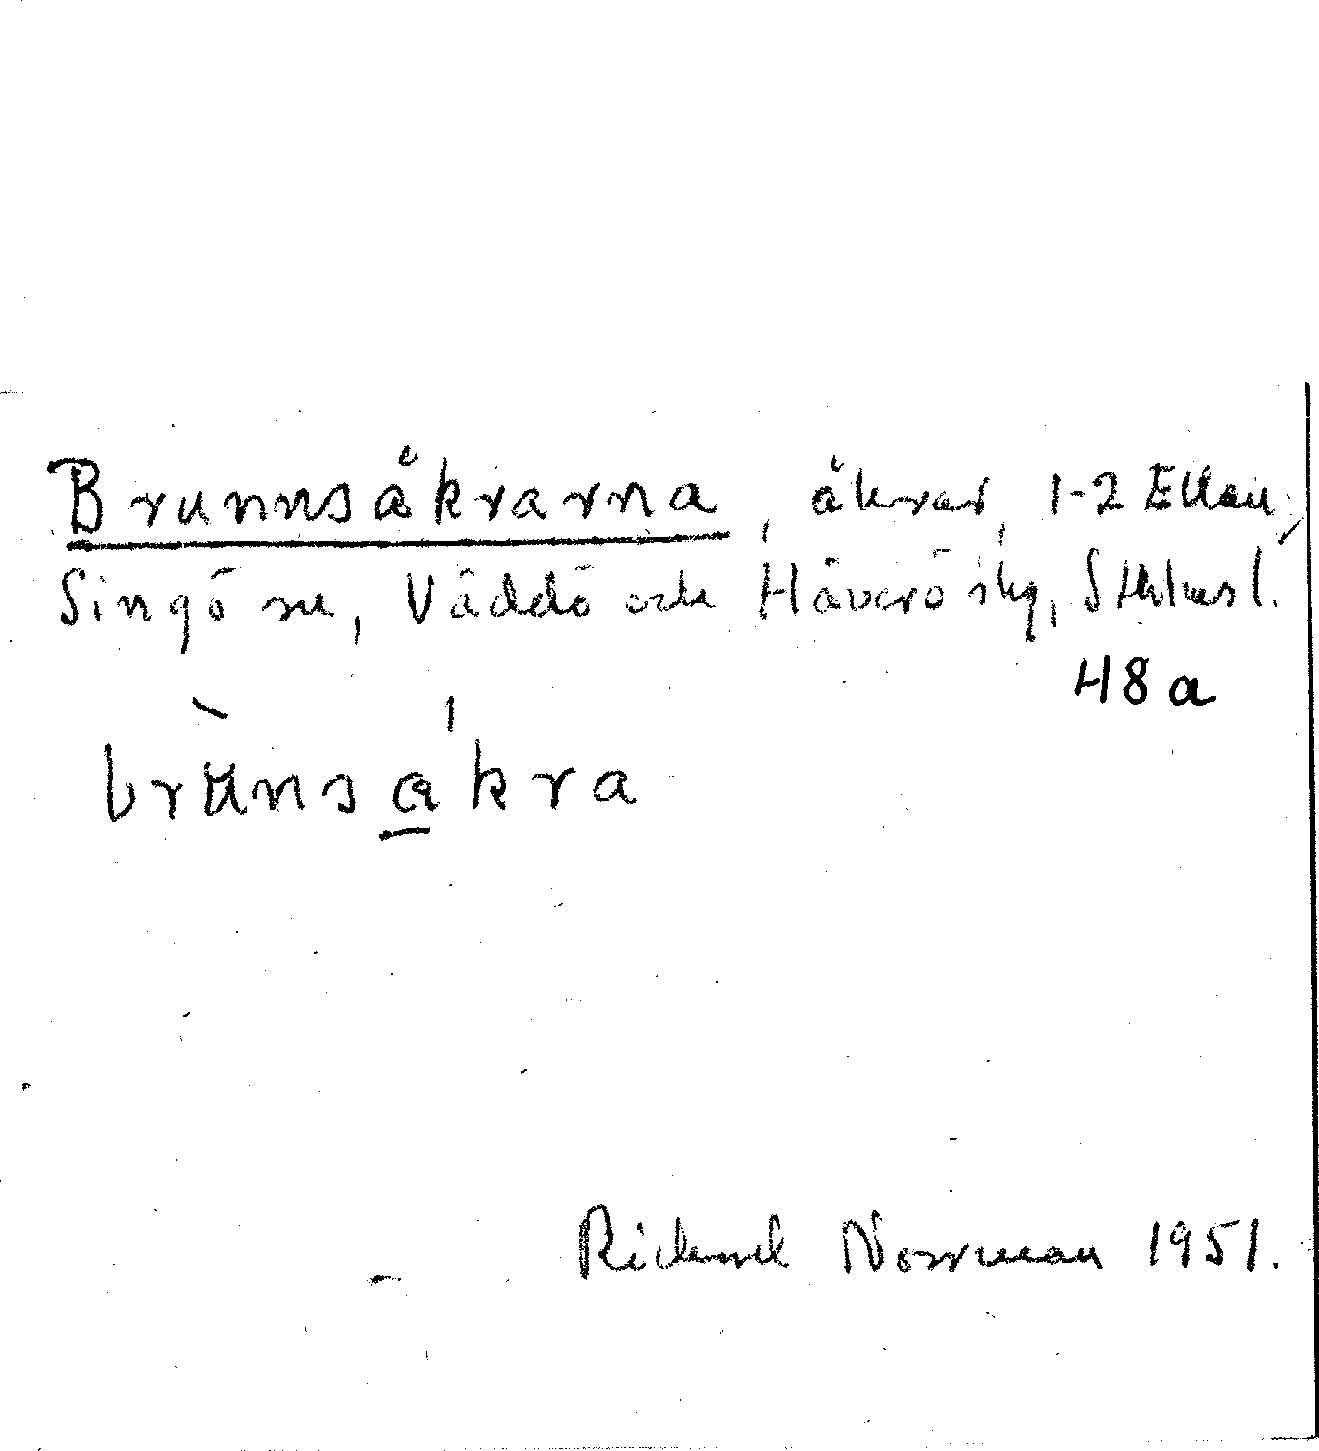 Brunnsåkrarna, åkrar, 1-2 Ellan,
Singö sn, Väddö och Häverö skg, Sthlms l.
48 a
Rickard Norrman 1951.